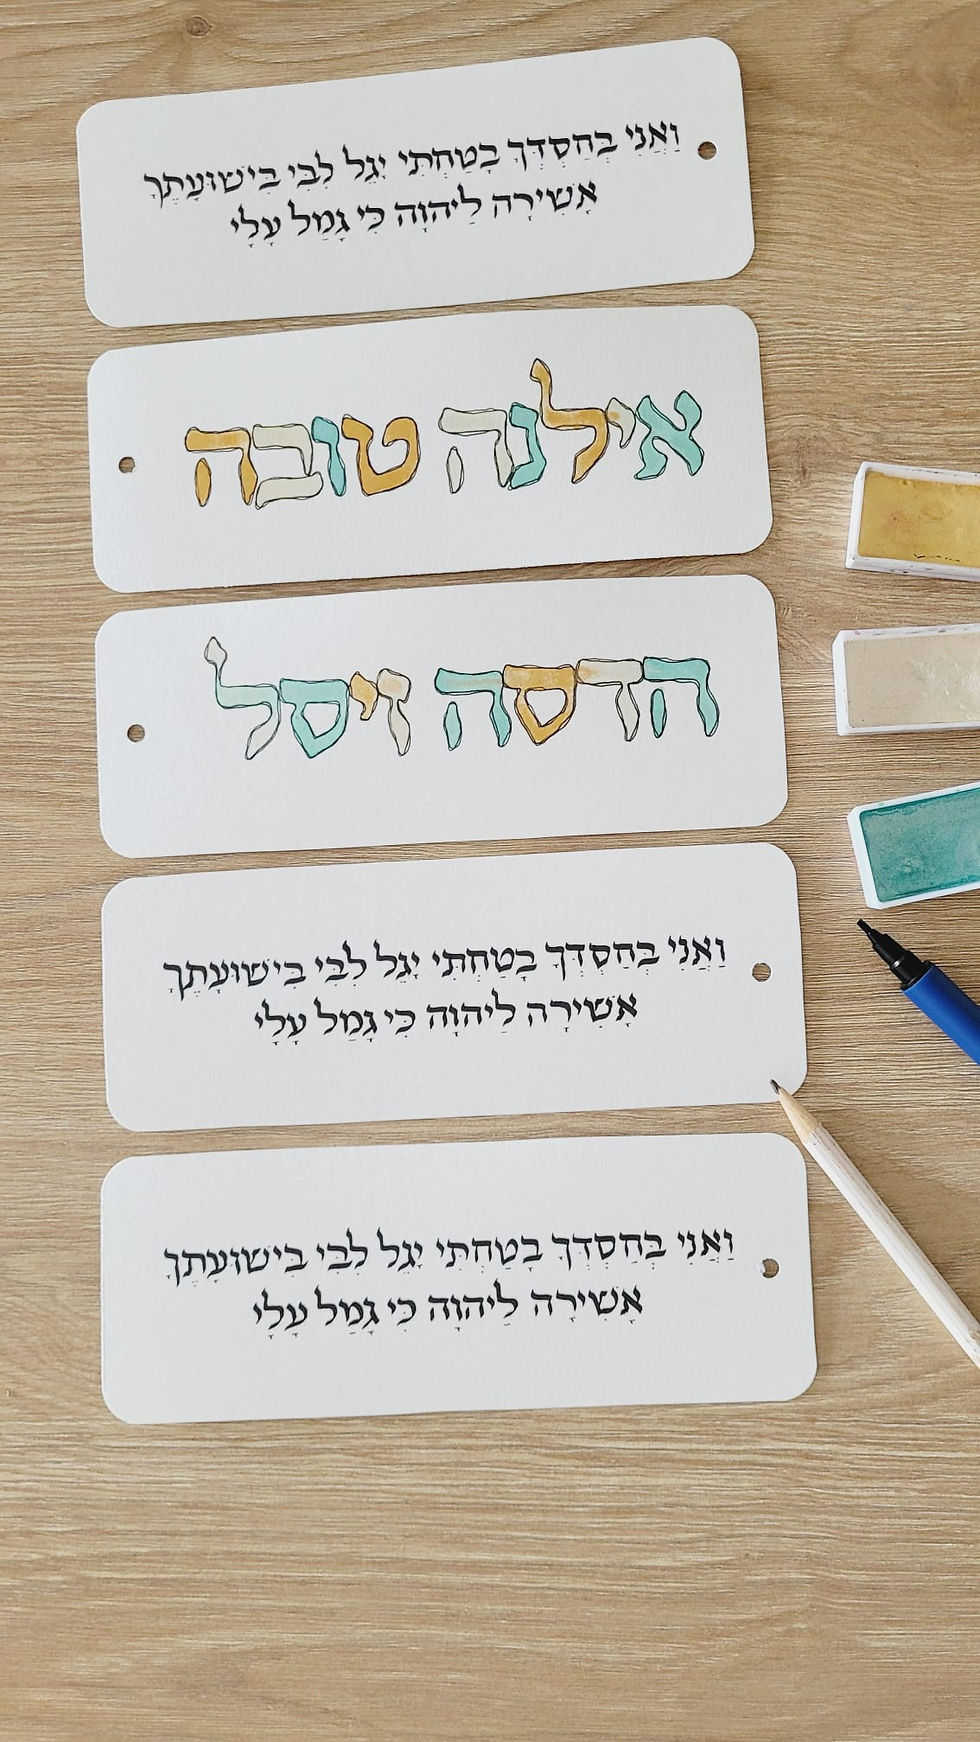 וַאֲנִי בְּחַסְדְּךָ בָטַחְתִּי יָגֵל לִבִּי בִּישׁוּעָתֶךָ
אָשִׁירָה לַיהוָה כִּי גָמַל עָלָי
אילנה טובה
הדסה זיסל
וַאֲנִי בְּחַסְדְּךָ בָטַחְתִּי יָגֵל לִבִּי בִּישׁוּעָתֶךָ
אָשִׁירָה לַיהוָה כִּי גָמַל עָלָי
וַאֲנִי בְּחַסְדְּךָ בָטַחְתִּי יָגֵל לִבִּי בִּישׁוּעָתֶךָ
אָשִׁירָה לַיהוָה כִּי גָמַל עָלָי